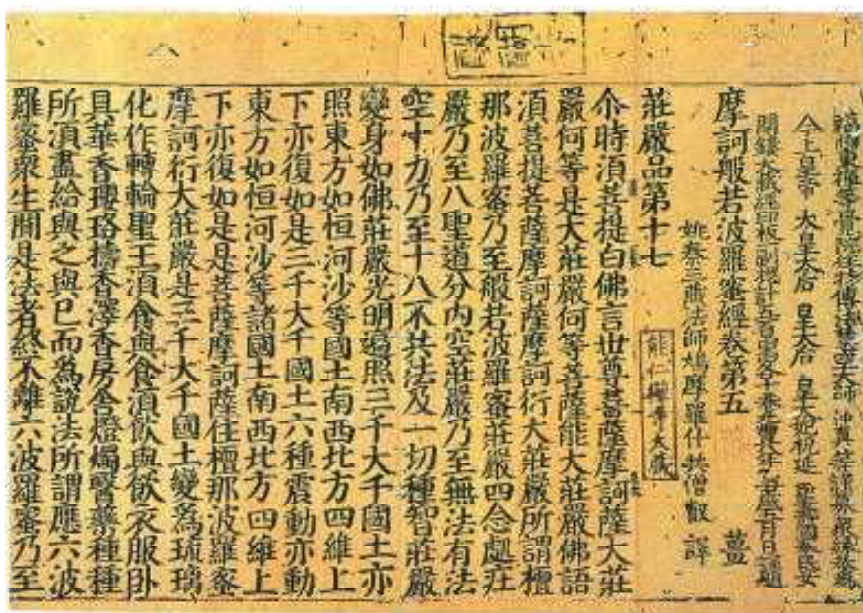 今上皇帝 太皇太后 皇太后 皇太妃祝延
開鏤大藏經印板一副總計五百
摩訶般若波羅蜜經卷第五 薑
姚秦三藏法師鳩摩羅什共僧叡 譯
莊嚴品第十七
能仁禪寺大藏
尒時須菩提白佛言世尊菩薩摩訶薩大莊
嚴何等是大莊嚴何等菩薩能大莊嚴佛語
須菩提菩薩摩訶薩摩訶衍大莊嚴所謂檀
那波羅蜜乃至般若波羅蜜莊嚴四念處莊
嚴乃至八聖道分內空莊嚴乃至無法有法
空十力乃至十八不共法及一切種智莊嚴
變身如佛莊嚴光明遍照三千大千國土亦
照東方如恒河沙等國土南西北方四維上
下亦復如是三千大千國土六種震動亦動
東方如恒河沙等諸國土南西北方四維上
下亦復如是是菩薩摩訶薩住檀那波羅蜜
摩訶衍大莊嚴是三千大千國土變為琉璃
化作轉輪聖王須食與食須飲與飲衣服臥
具華香瓔珞擣香澤香房舍燈燭醫藥種種
所須盡給與之與已而為說法所謂應六波
羅蜜衆生聞是法者終不離六波羅蜜乃至